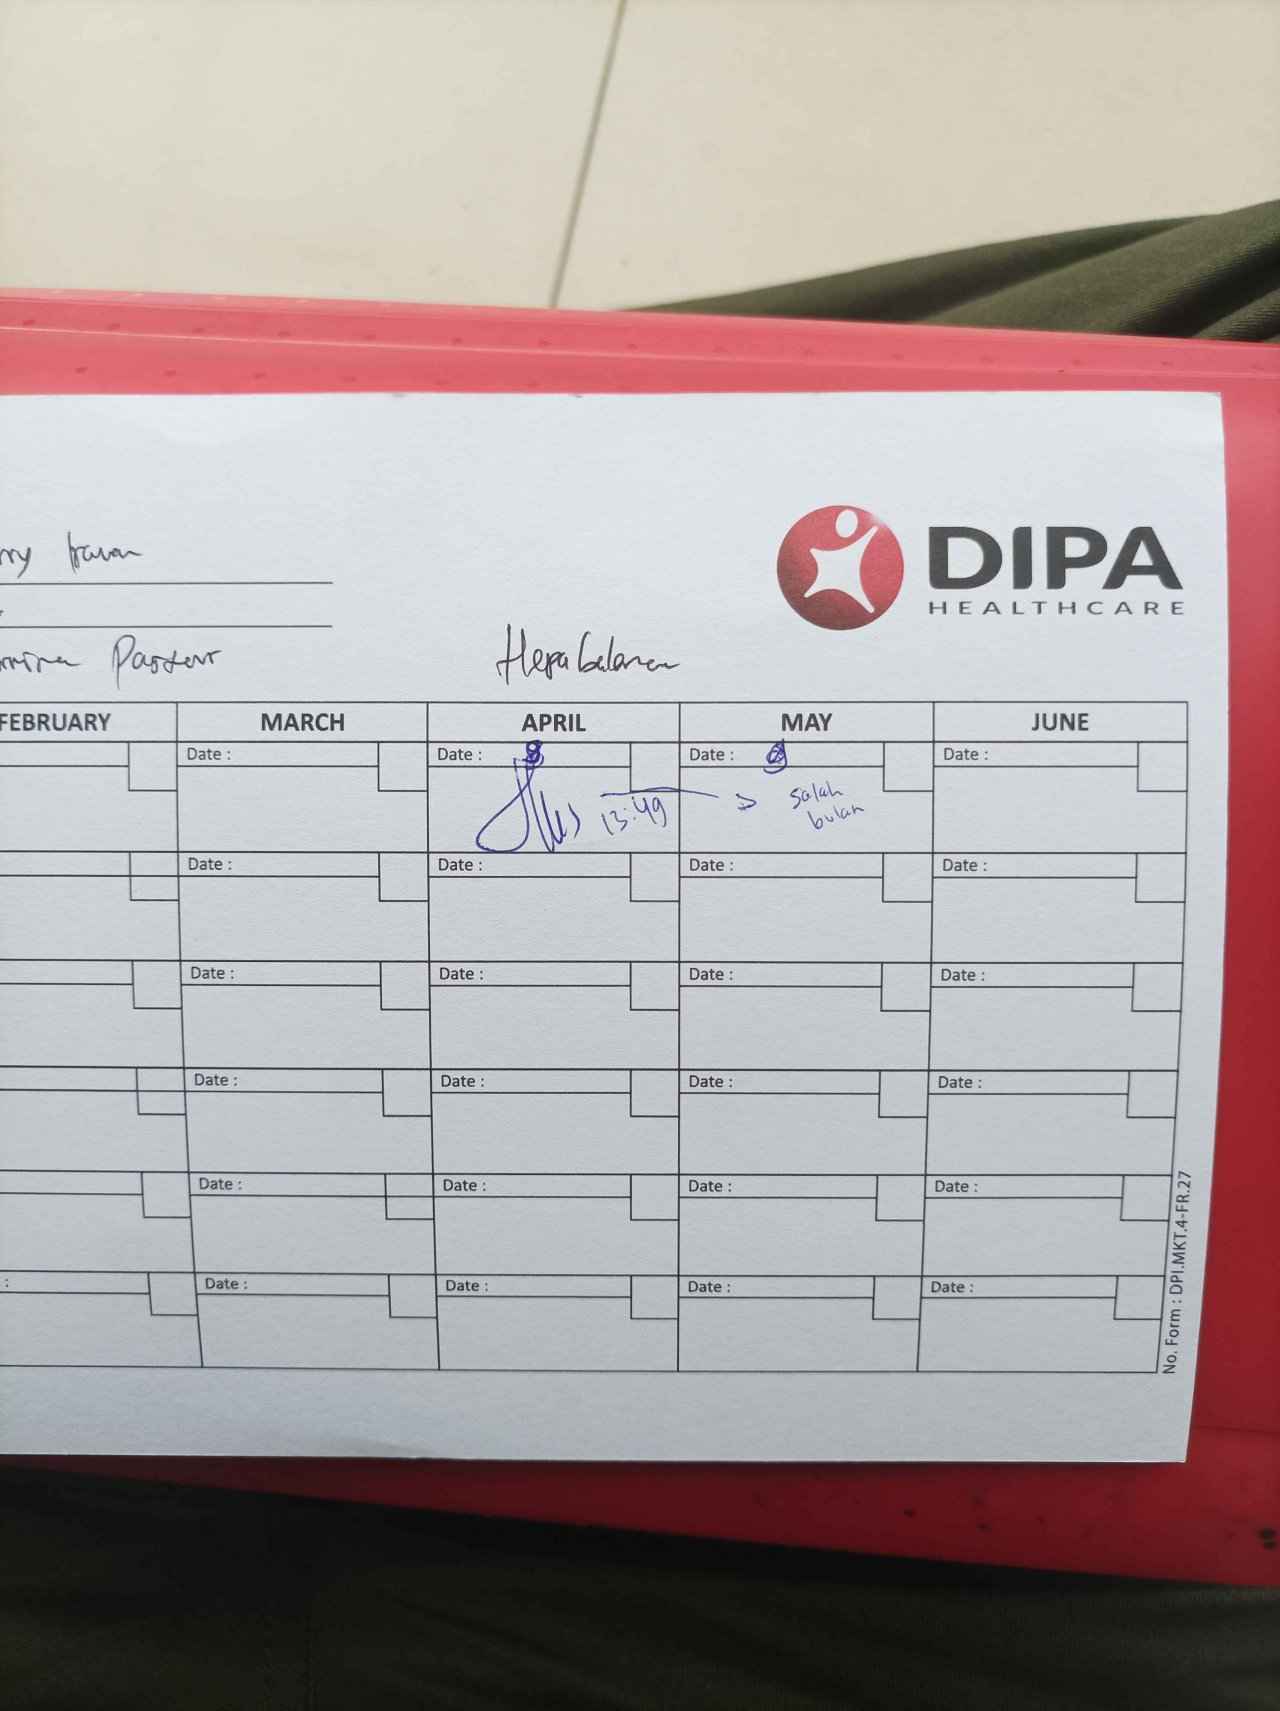 DIPA
HEALTHCARE
Pasteur
FEBRUARY MARCH APRIL MAY JUNE
Date : Date : 8 Date : Date :
13:49 → salah
bulan
Date : Date : Date : Date :
Date : Date : Date : Date :
Date : Date : Date : Date :
Date : Date : Date : Date :
: Date : Date : Date : Date :
No. Form : DPI.MKT.4-FR.27